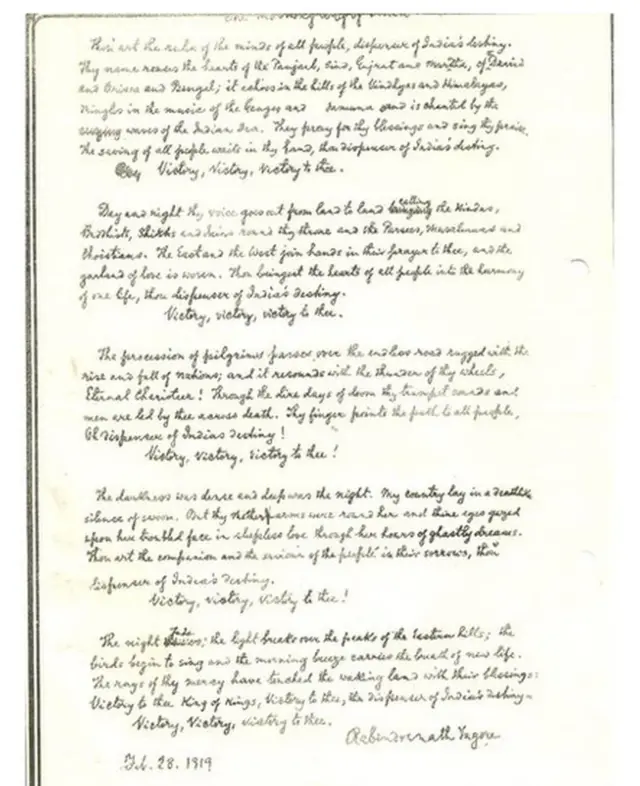 The morning song of India
Thou art the ruler of the minds of all people, dispenser of India's destiny.
Thy name rouses the hearts of the Panjarb, Sind, Gujrat and Maratta, of Dravid
and Orissa and Bengal; it echoes in the hills of the Vindhyas and Himalayas,
mingles in the music of the Ganges and Jamuna and is chanted by the
surging waves of the Indian Sea. They pray for thy blessings and sing thy praise.
The saving of all people waits in thy hand, thou dispenser of India's destiny.
Victory, Victory, Victory to thee.
Day and night thy voice goes out from land to land calling the Hindus,
Buddhists, Shikhs and Jains round thy throne and the Parsees, Musalmans and
Christians. The East and the West join hands in their prayer to thee, and the
garland of love is woven. Thou bringest the hearts of all people into the harmony
of one life, thou dispenser of India's destiny.
Victory, victory, victory to thee.
The procession of pilgrims passes over the endless road rugged with the
rise and fall of nations; and it resounds with the thunder of thy wheels,
Eternal Charioteer! Through the dire days of doom thy trumpet sounds and
men are led by thee across death. Thy finger points the path to all people,
Oh dispenser of India's destiny!
Victory, victory, victory to thee!
The darkness was dense and deep was the night. My country lay in a deathlike
silence of swoon. But thy Mother arms were round her and thine eyes gazed
upon her troubled face in sleepless love through her hours of ghastly dreams.
Thou art the companion and the saviour of the people in their sorrows, thou
dispenser of India's destiny.
Victory, victory, victory to thee!
The night fades; the light breaks over the peaks of the Eastern hills; the
birds begin to sing and the morning breeze carries the breath of new life.
The rays of thy mercy have touched the waking land with their blessings.
Victory to thee King of Kings, Victory to thee, the dispenser of India's destiny.
Victory, Victory, victory to thee.
Rabindranath Tagore
Feb. 28. 1919